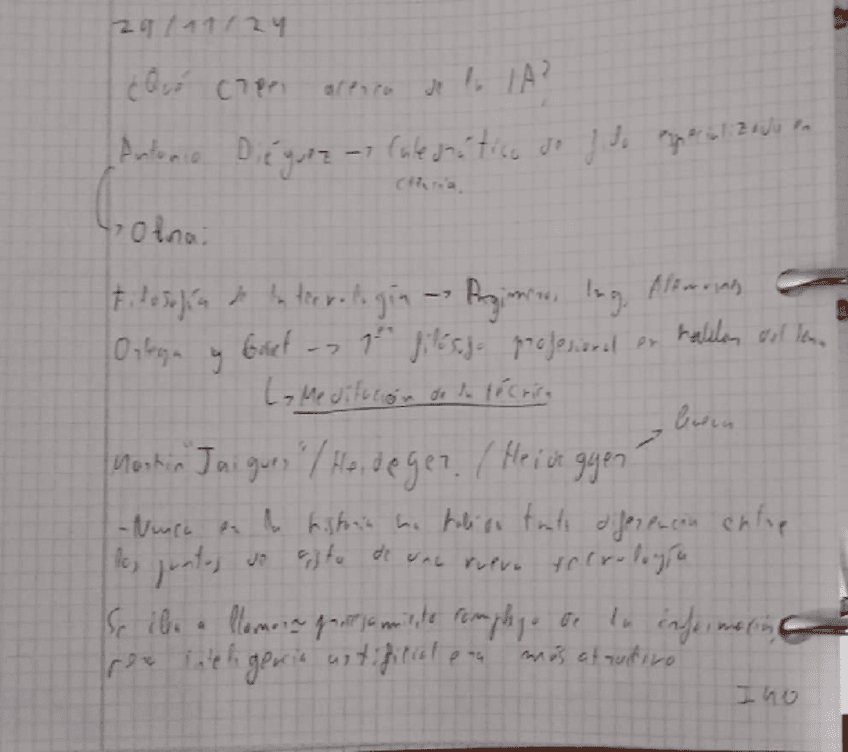 29/11/24
¿Qué crees acerca de la IA?
Antonio Diéguez -> Catedrático de filo especializado en
ciencia.
-> Otra:
Filosofía de la tecnología -> Ing. Alemanes
Ortega y Gaset -> 1er filósofo profesional en hablar del tema
-> Meditación de la técnica
"Jaiguer" / Heideger. / Heideggen ->
- Nunca en la historia ha habido tanta diferencia entre
los puntos de vista de una nueva tecnología
Se iba a llamar procesamiento complejo de la información,
pero inteligencia artificial era más atractivo